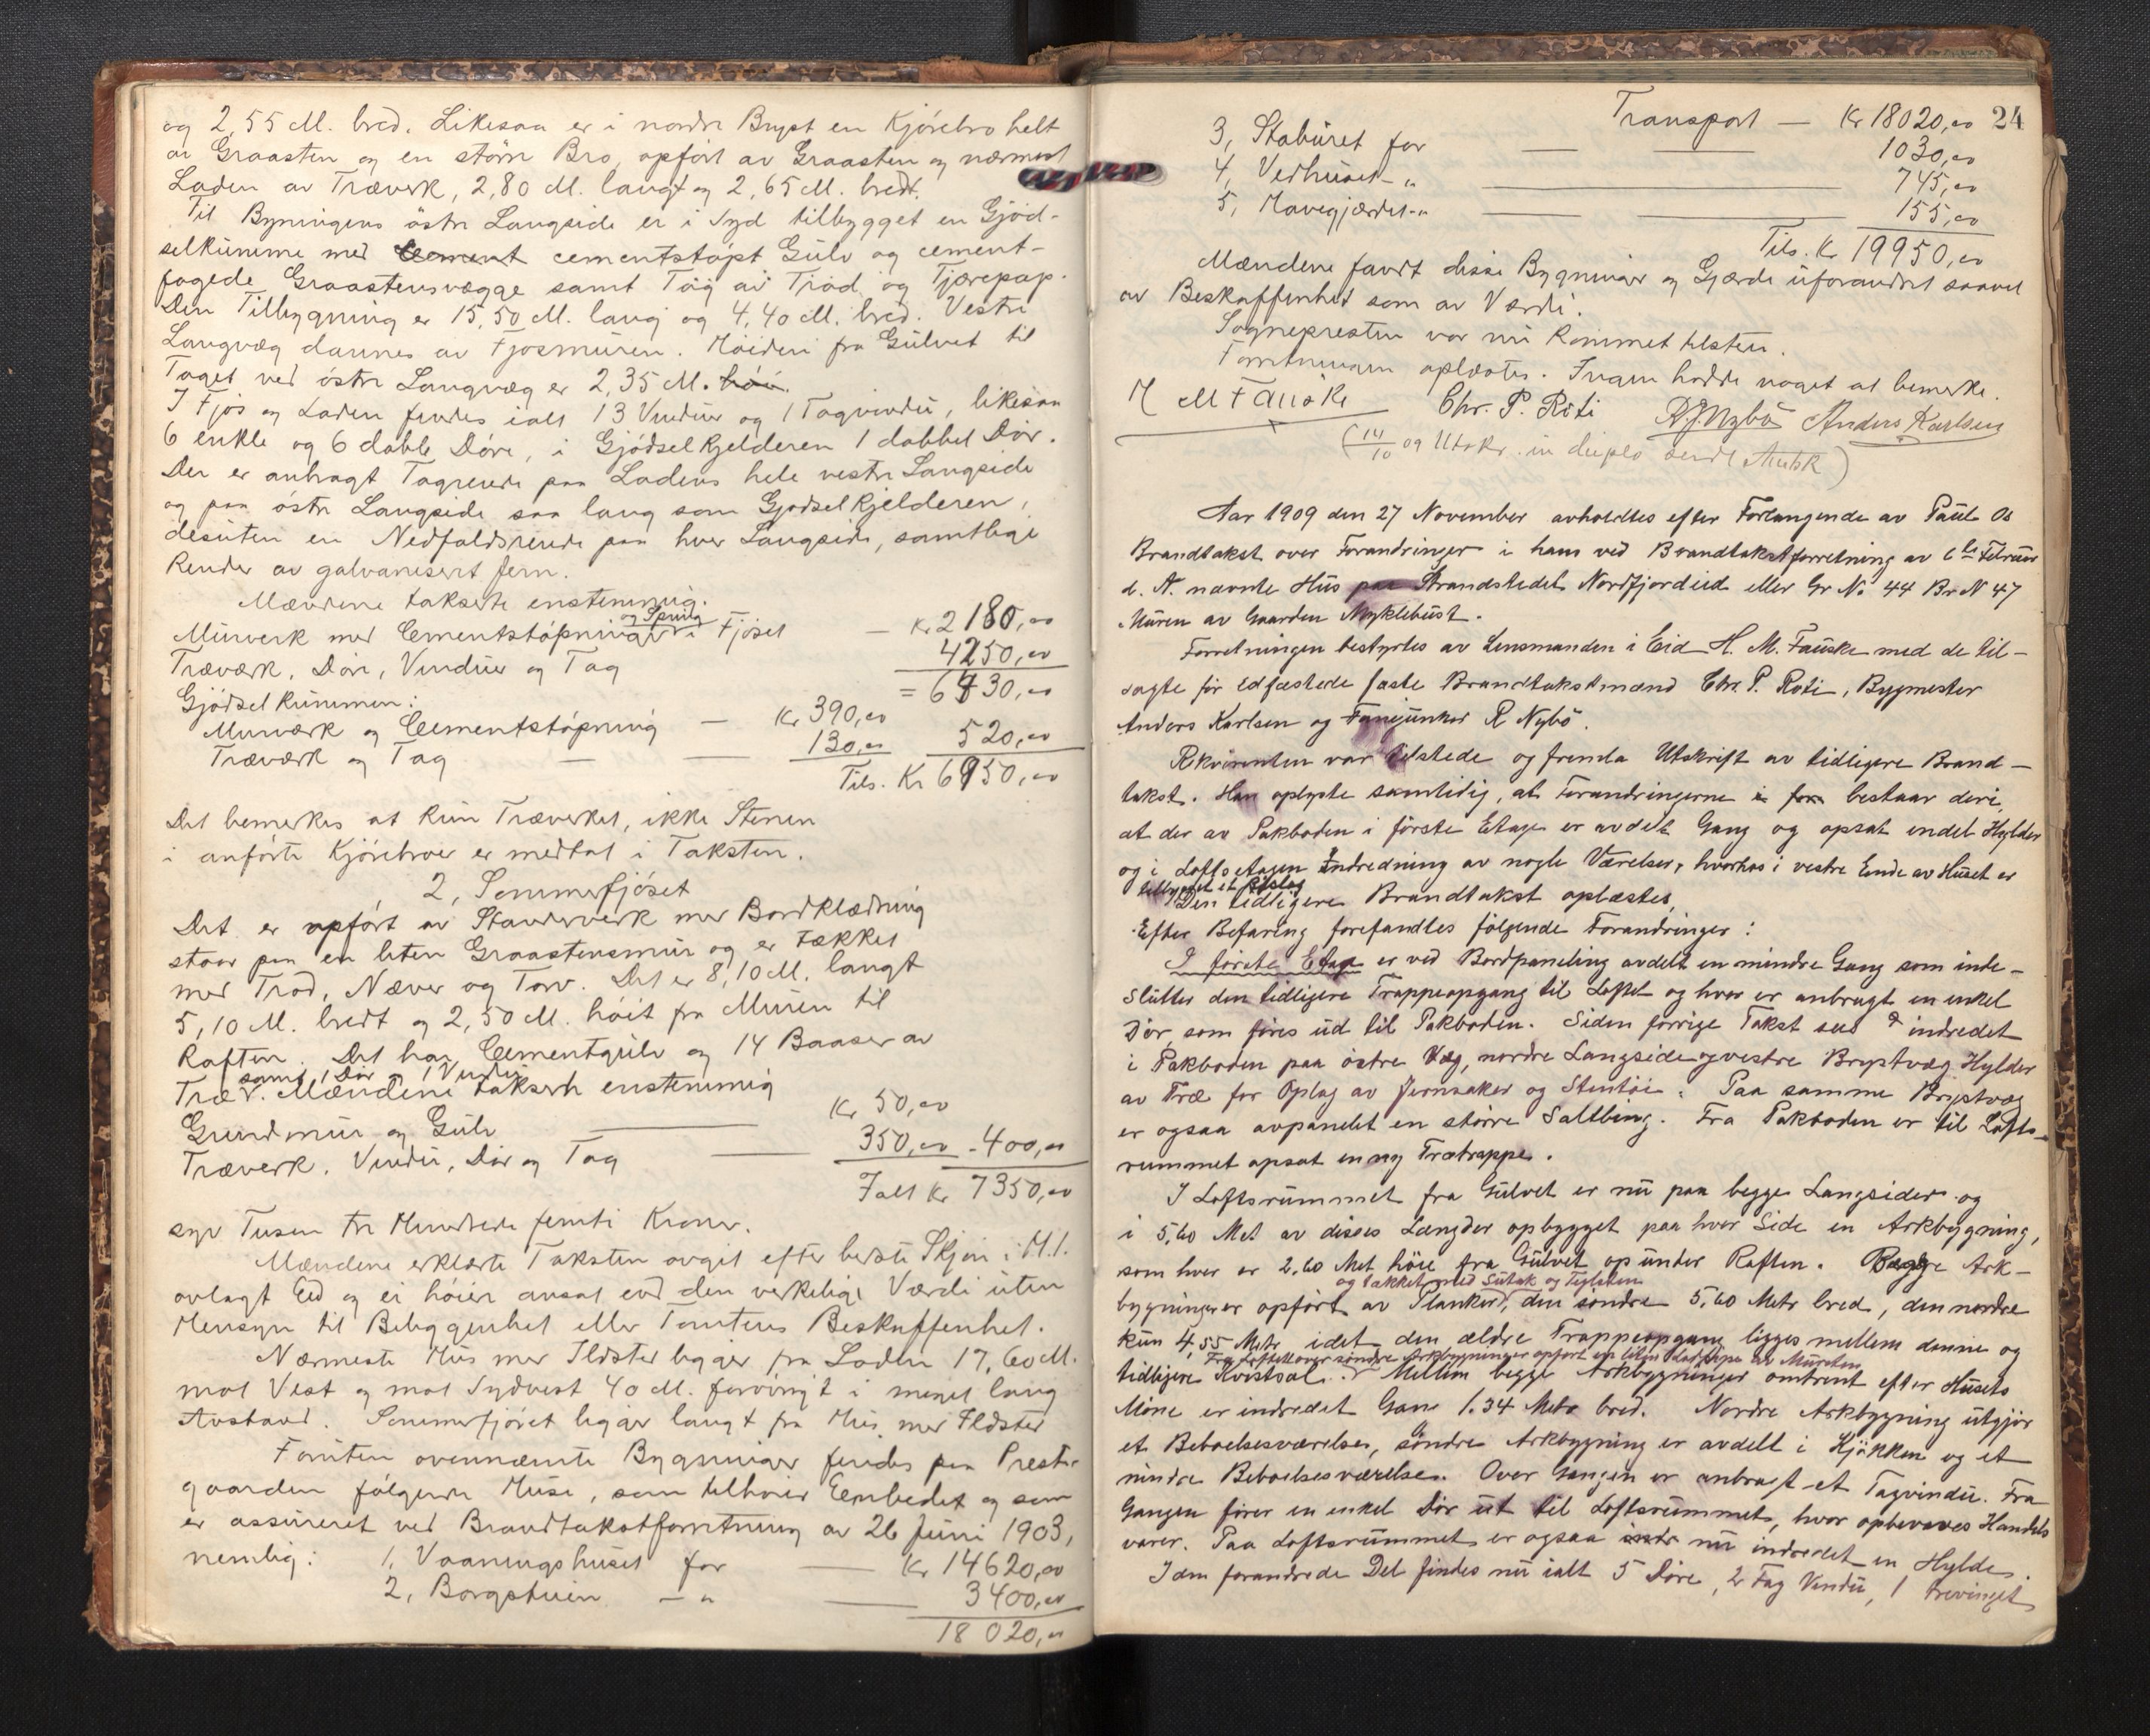 og 2,55 M. bred. Likesaa er i nordre Bryst en Kjørebro helt
av Graasten og en større Bro, opført av Graasten og nærmest
Laden av Træverk, 2,80 M. langt og 2,65 M. bredt.
Til Bygningens østre Langside er i Syd tilbygget en Gjød-
selkumme med Cement cementstøpt Gulv og cement-
fugede Graastensvægge samt Tag av Trod og Tjærepap.
Den Tilbygning er 15,50 M. lang og 4,40 M. bred. Vestre
Langvæg dannes av Fjøsmuren. Høiden fra Gulvet til
Taget ved østre Langvæg er 2,35 M. høi.
I Fjøs og Laden findes ialt 13 Vinduer og 1 Tagvindu, likesaa
6 enkle og 6 doble Døre, i Gjødselkjelderen 1 dobbel Dør.
Der er anbragt Tagrende paa Ladens hele vestre Langside
og paa østre Langside saa lang som Gjødselkjelderen,
desuten en Nedfaldsrende paa hver Langside, samtlige
Render av galvanisert Jern.
Mændene takserte enstemmig:
Murverk med Cementstøpninger og Spring i Fjøset — Kr. 2180,00
Træværk, Døre, Vinduer og Tag 4250,00
= 6430,00
Gjødselkummen:
Murværk og Cementstøpning — Kr. 390,00
Træværk og Tag — — 130,00 520,00
Tils. Kr. 6950,00
Det bemerkes at kun Træverket, ikke Stenen
i anførte Kjørebroer er medtat i Taksten.
2, Sommerfjøset
Det er opført av Stavververk med Bordklædning
staar paa en liten Graastensmur og er tækket
med Trod, Næver og Torv. Det er 8,10 M. langt
5,10 M. bredt og 2,50 M. høit fra Muren til
Raften. Det har Cementgulv og 14 Baaser av
Træ samt 1 Dør og 1 Vindu. Mændene takserte enstemmig
Grundmur og Gulv — Kr. 50,00
Træverk, Vindu, Dør og Tag — 350,00 - 400,00
Ialt Kr. 7350,00
syv Tusen tre Hundrede femti Kroner.
Mændene erklærte Taksten avgit efter beste Skjøn i H.t.
avlagt Eed og ei høiere ansat end den verkelige Værdi uten
Hensyn til Beliggenhet eller Tomtens Beskaffenhet.
Nærmeste Hus med Ildsted ligger fra Laden 17,60 M.
mot Vest og mot Sydvest 40 M. forøvrigt i meget lang
Avstand. Sommerfjøset ligger langt fra Hus med Ildsted
Foruten ovennævnte Bygninger findes paa Preste-
gaarden følgende Huse, som tilhører Eembedet og som
er assureret ved Brandtakstforretning av 26 Juni 1903,
nemlig: 1, Vaaningshuset for — Kr 14620,00
2, Borgstuen — " — 3400,00
18 020,00
24
Transport — Kr 18020,00
3, Stabüret for — — 1030,00
4, Vedhuset — " — 745,00
5, Havegjærdet — " — 155,00
Tils. Kr 19950,00
Mændene fandt disse Bygninger og Gjærde uforandret saavel
av Beskaffenhet som av Værdi.
Sognepresten var nu kommet tilstede.
Forretningen oplæstes. Ingen hadde noget at bemerke.
H M Fauske Chr. P. Roti R. J. Nybø Anders Karlsen
(14/10 09 Utskr. in duplo sendt Amtsk)
Aar 1909 den 27 November avholdtes efter Forlangende av Paul Os
Brandtakst over Forandringer i hans ved Brandtakstforretning av 6te Februar
d. A. nævnte Hus paa Strandstedet Nordfjordeid eller Gr No 44 Br N 47
Muren av Gaarden Myklebust.
Forretningen bestyrtes av Lensmanden i Eid H. M. Fauske med de til-
sagte før edfæstede faste Brandtakstmænd Chr. P. Roti, Bygmester
Anders Karlsen og Fanejunker R Nybø.
Rekvirenten var tilstede og fremla Utskrift av tidligere Brand-
takst. Han oplyste samtidig, at Forandringerne i for bestaar deri,
at der av Pakboden i første Etage er avdelt Gang og opsat endel Hylder
og i Loftsetagen Indredning av nogle Værelser, hvorhos i vestre Ende av Huset er
tilbygget et Bislag
Den tidligere Brandtakst oplæstes.
Efter Befaring forefandtes følgende Forandringer:
I første Etage er ved Bordpaneling avdelt en mindre Gang som inde-
slutter den tidligere Trappeopgang til Loftet og hvor er anbragt en enkel
Dør, som føres ud til Pakboden. Siden forrige Takst sees indredet
i Pakboden paa østre Væg, nordre Langside og vestre Brystvæg Hylder
av Træ for Oplag av Jernsaker og Stentøi. Paa samme Brystvæg
er ogsaa avpanelet en større Saltbing. Fra Pakboden er til Lofts-
rummet opsat en ny Trætrappe.
I Loftsrummet fra Gulvet er nu paa begge Langsider og
i 5,60 Met av disses Længder opbygget paa hver Side en Arkbygning,
som hver er 2,60 Met høie fra Gulvet op under Raften. Begge Ark-
bygninger er opført av Planker, og takket med Sutak og Teglsten den søndre 5,60 Metr bred, den nordre
kun 4,55 Metr idet den ældre Trappeopgang ligges mellem denne og
tidligere Kvistsal. Mellem begge Arkbygninger omtrent efter Husets
Møne er indredet Gang 1.34 Metr bred. Nordre Arkbygning utgjør
et Beboelsesværelse, søndre Arkbygning er avdelt i Kjøkken og et
mindre Beboelsesværelse. Over Gangen er anbragt et Tagvindu. Fra
Gangen fører en enkel Dør ut til Loftsrummet, hvor opbevares Handels
varer. Paa Loftsrummet er ogsaa nu indredet en Hylde.
I den forandrede Del findes nu ialt 5 Døre, 2 Fag Vindu, 1 trevinget